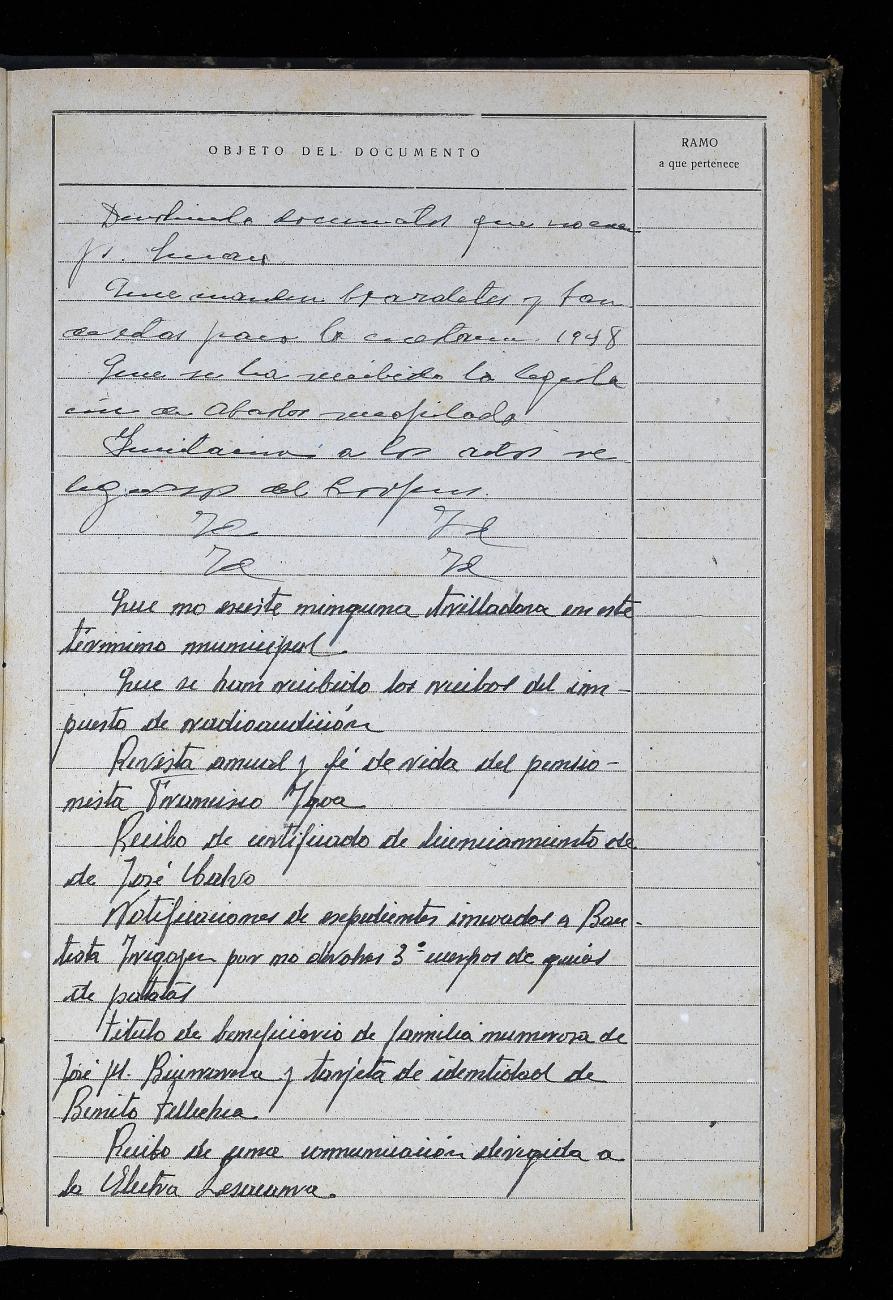 OBJETO DEL DOCUMENTO
RAMO
a que pertenece
Devolviendo documentos que no
Que manden brazaletes y tan
para la 1948
Que se ha recibido la legisla
ción de Abastos recopilada
Invitacion a los actos re
ligiosos del Corpus.
Id Id
Id Id
Que no existe ninguna trilladora en este
término municipal.
Que se han recibido los recibos del im-
puesto de radioaudición
Revista anual y fé de vida del pensio-
nista Francisco Ygoa
Recibo de certificado de licenciamiento de
de José Calvo
Notificaciones de expedientes incoados a Bau-
tista Irigoyen por no devolver 3º cuerpos de guias
de patatas
Titulo de beneficiario de familia numerosa de
José M. y tarjeta de identidad de
Benito Tellechea
Recibo de una comunicación dirigida a
la Electra Lesacarra.